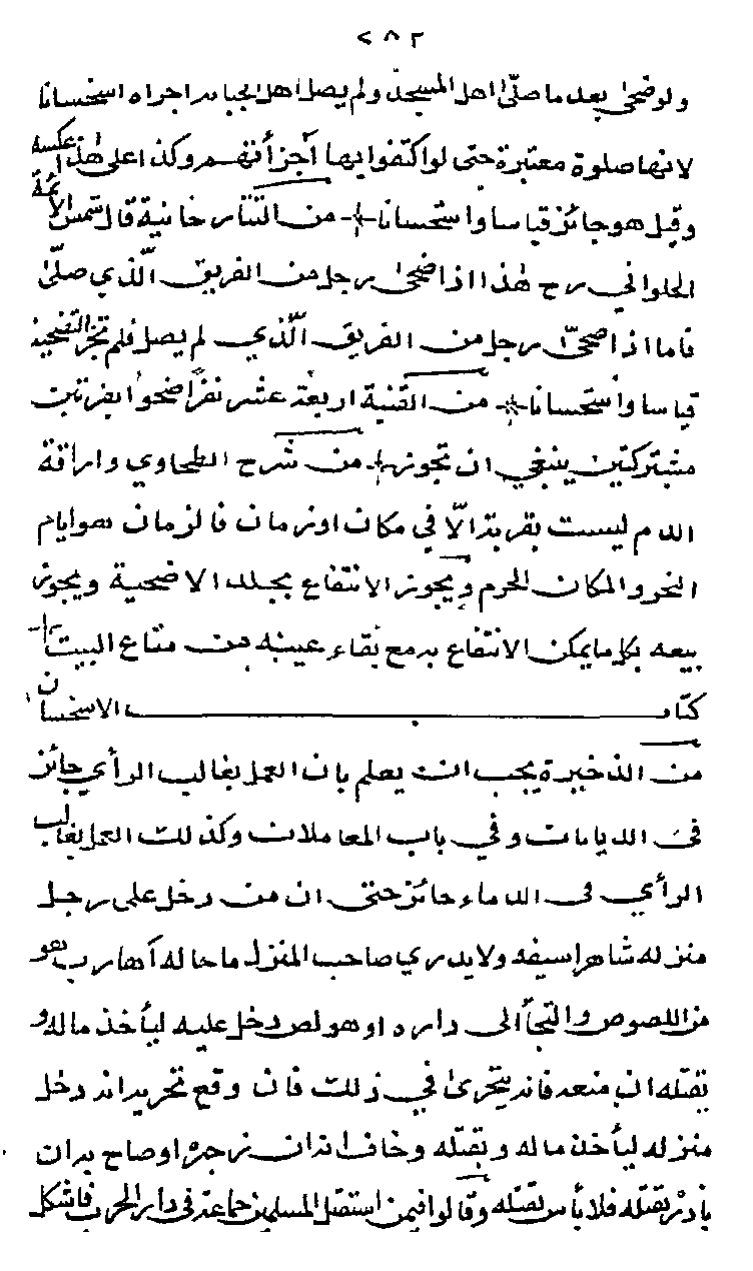 ٢٨٢
ولو ضحى بعد ما صلّى اهل المسجد ولم يصل اهل الجبانة اجزاه استحسانا
لانها صلوة معتبرة حتى لو اكتفوا بها أجزأتهم وكذا على هذا عكسه
وقيل هو جائز قياسا واستحسانا من التتارخانية قال شمس الائمة
الحلواني رح هٰذا اذا ضحى رجل من الفريق الّذي صلّى
فاما اذا ضحىّ رجل من الفريق الّذي لم يصل فلم تجز التضحية
قياسا واستحسانا من القنية اربعة عشر نفرًا ضحوا بقرتين
مشتركتين ينبغي ان تجوز من شرح الطحاوي واراقة
الدم ليست بقربة الّا في مكان او زمان فالزمان هو ايام
النحر والمكان الحرم ويجوز الانتفاع بجلد الاضحية ويجوز
بيعه بكل ما يمكن الانتفاع به مع بقاء عينه من متاع البيت
كتاب الاستحسان
من الذخيرة يجب ان يعلم بان العمل بغالب الرأي جائز
في الديانات وفي باب المعاملات وكذلك العمل بغالب
الرأي في الدماء جائز حتى ان من دخل على رجل
منزله شاهرا سيفه ولا يدري صاحب المنزل ما حاله أهارب هو
من اللصوص والتجأ الى داره او هو لص دخل عليه ليأخذ ماله و
يقتله ان منعه فانه يتحرى في ذلك فان وقع تحريه انه دخل
منزله ليأخذ ماله ويقتله وخاف انه ان زجره او صاح به ان
يقتله فلا بأس بقتله وقالوا فيمن استقبل المسلمين جماعة في دار الحرب فاشكل